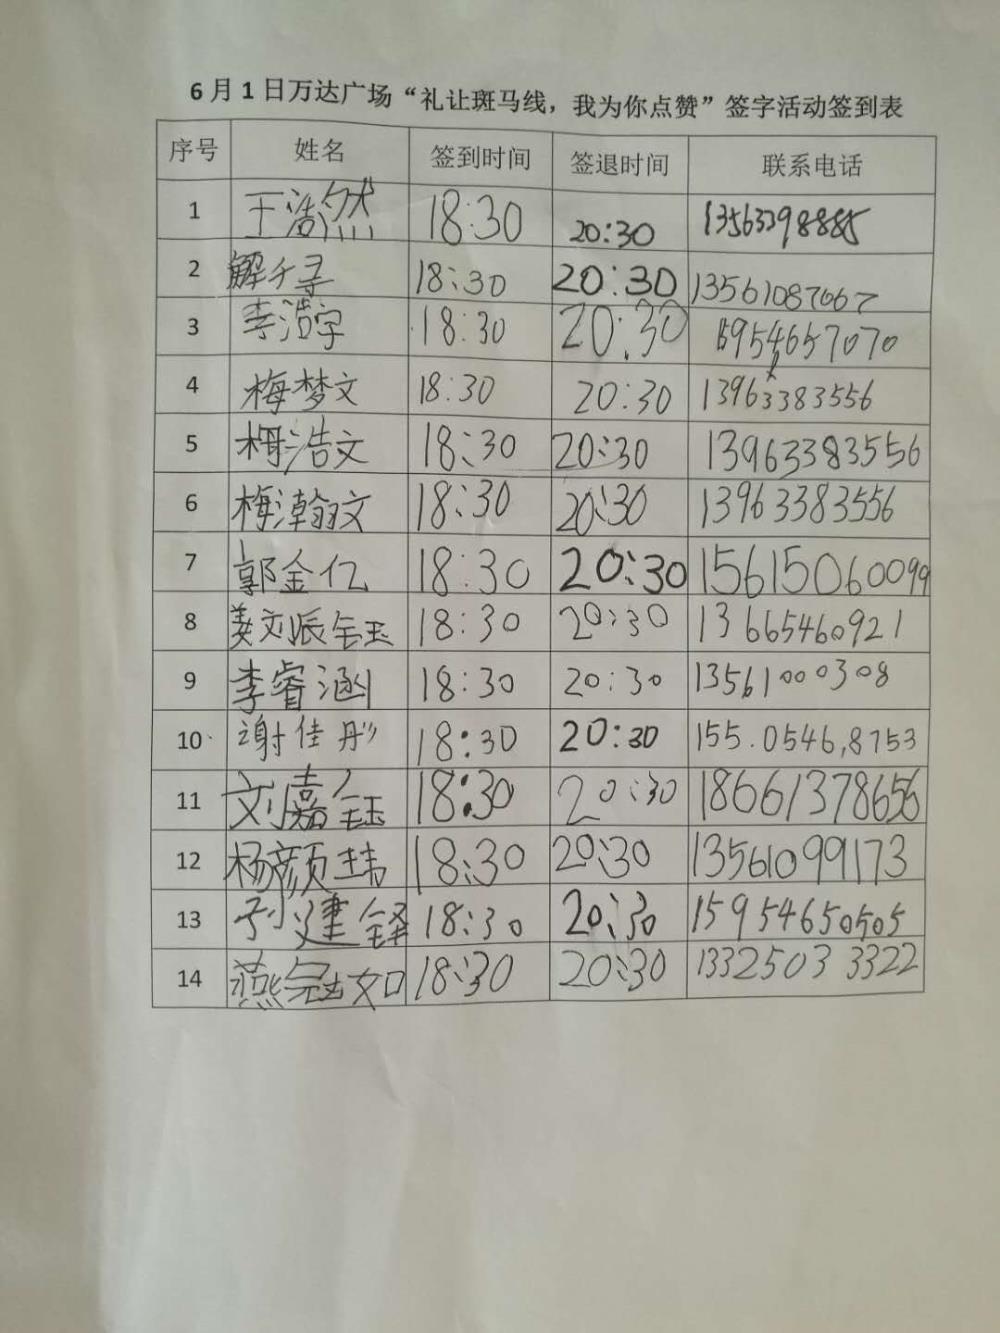 6月1日万达广场“礼让斑马线，我为你点赞”签字活动签到表
序号 姓名 签到时间 签退时间 联系电话
1 王浩然 18:30 20:30 13563398885
2 解千寻 18:30 20:30 13561087667
3 李浩宇 18:30 20:30 15954657070
4 梅梦文 18:30 20:30 13963383556
5 梅浩文 18:30 20:30 13963383556
6 梅瀚文 18:30 20:30 13963383556
7 郭金亿 18:30 20:30 15615060099
8 姜刘派钰 18:30 20:30 13665460921
9 李睿涵 18:30 20:30 13561000308
10 谢佳彤 18:30 20:30 155.0546,8753
11 刘嘉钰 18:30 20:30 18661378656
12 杨颜玮 18:30 20:30 13561099173
13 孙建铎 18:30 20:30 15954650505
14 燕冠如 18:30 20:30 13325033322